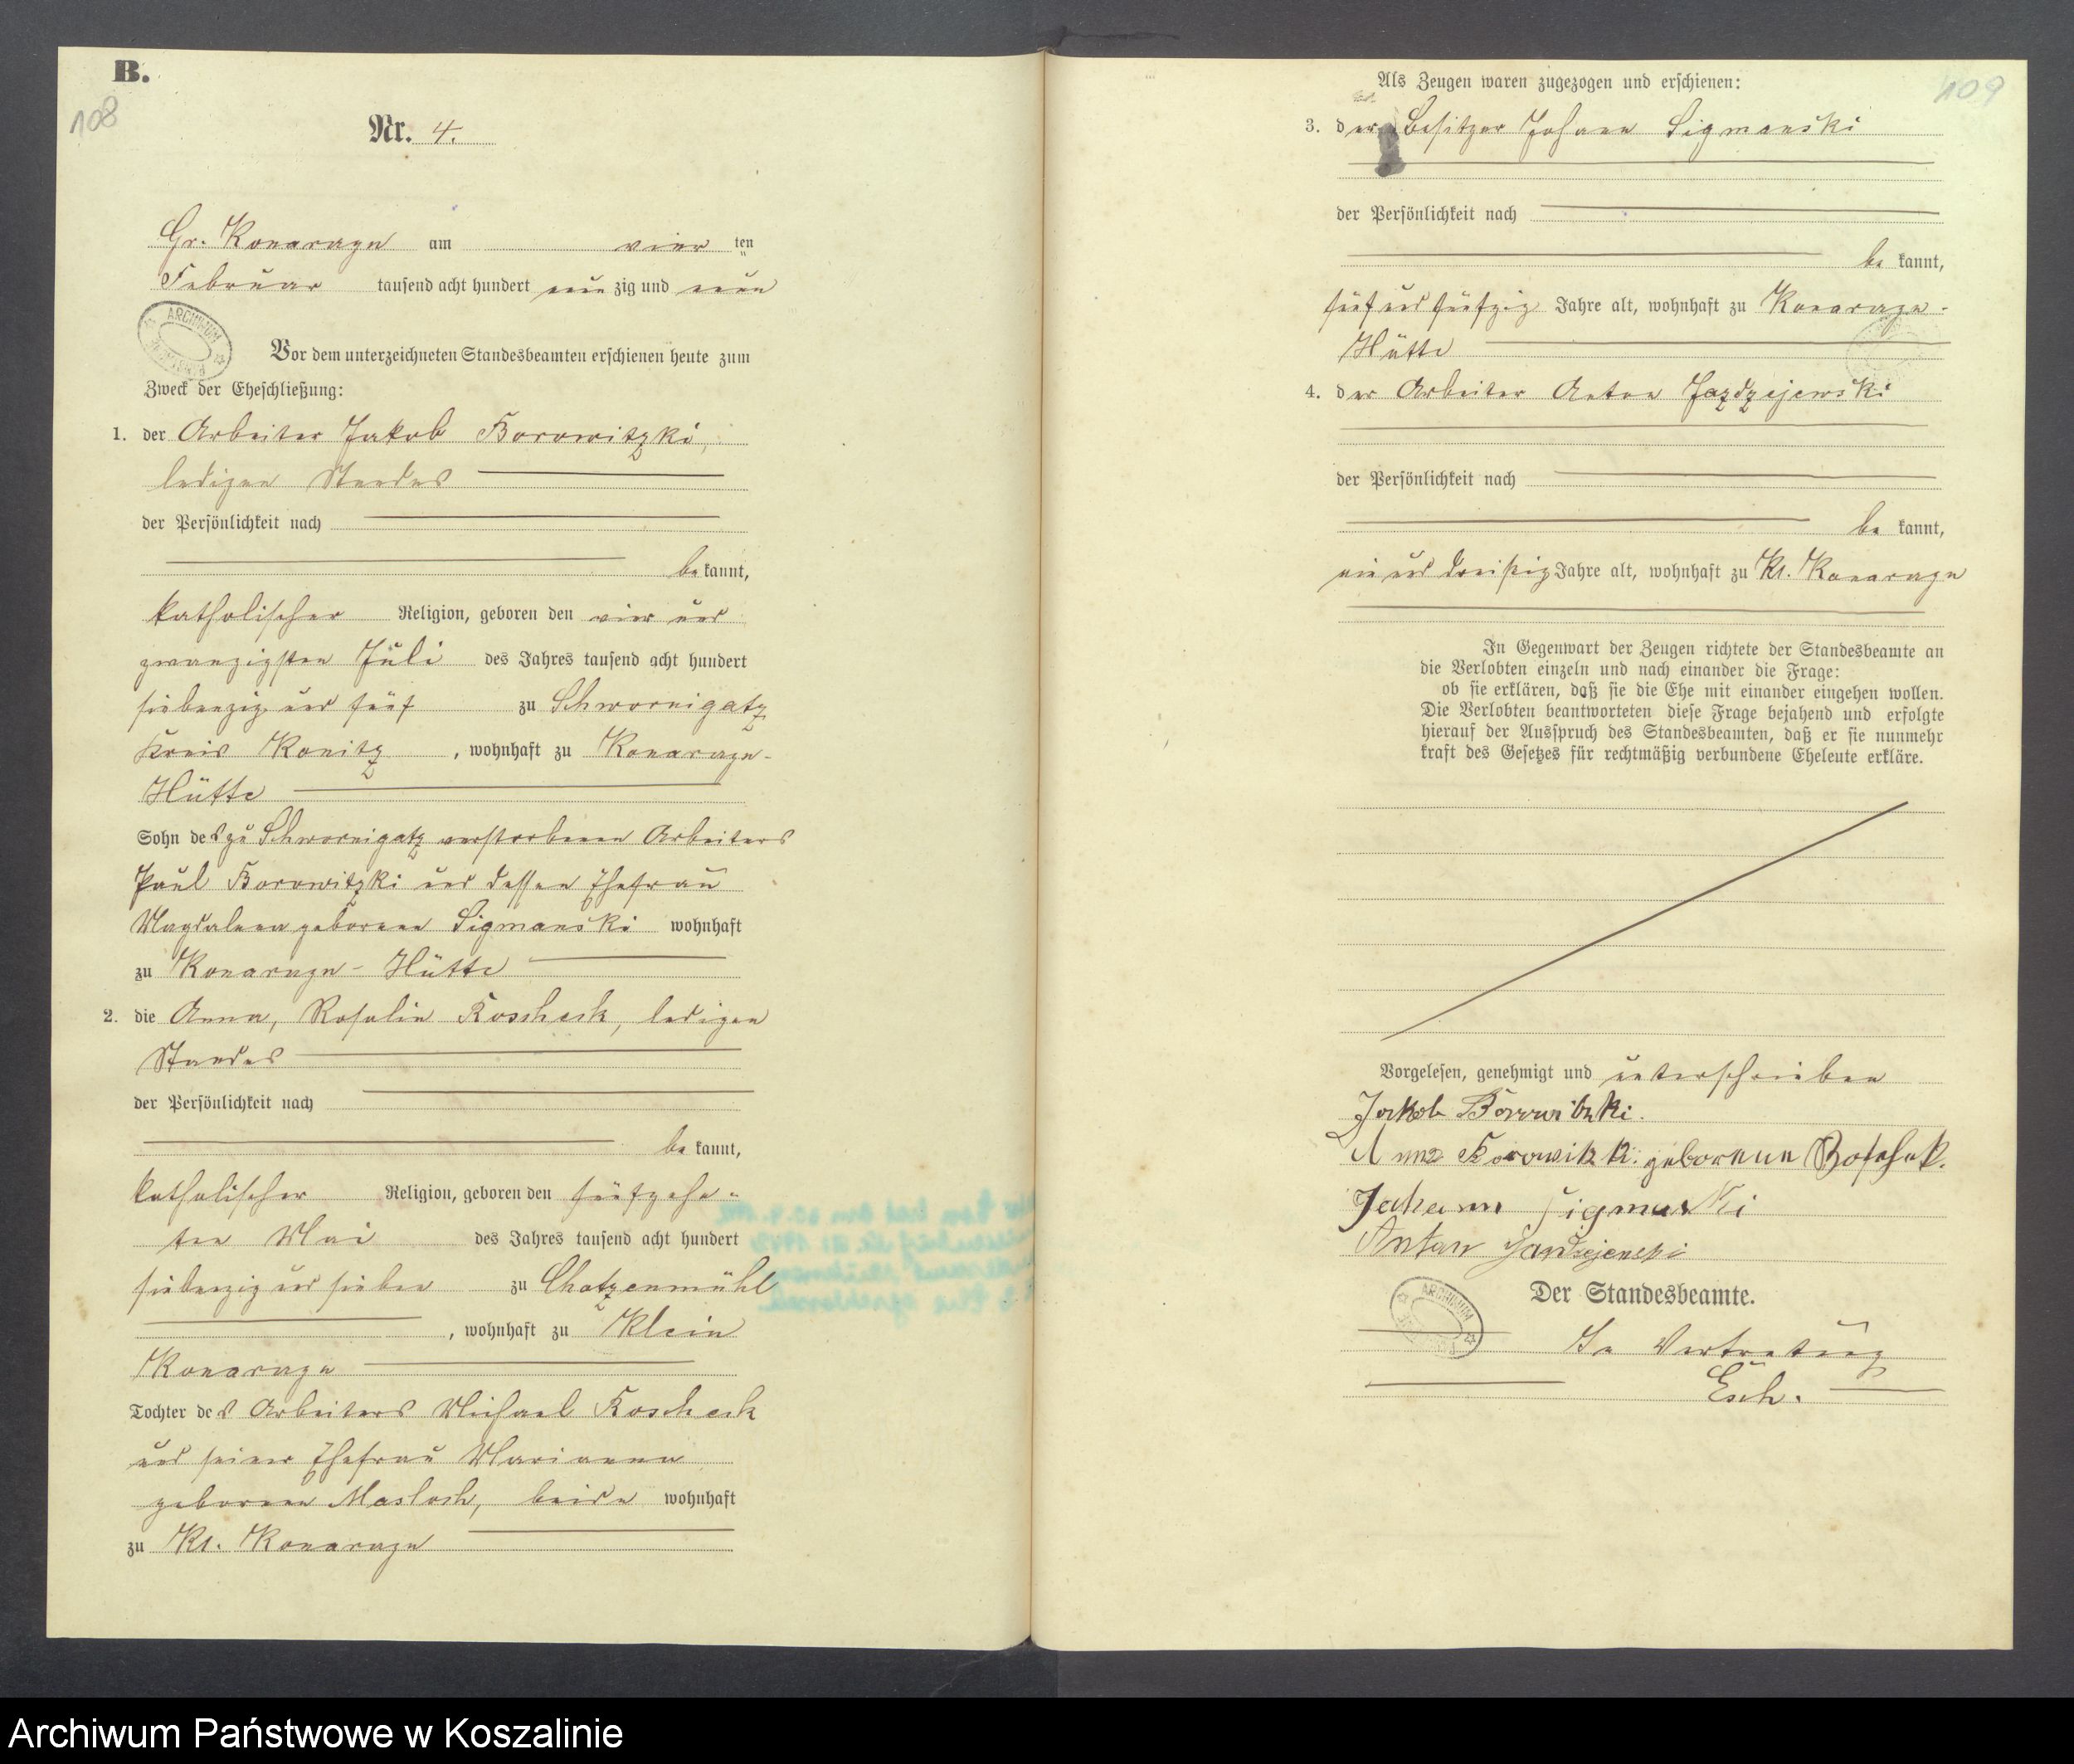 B.
108
Nr. 4.
Gr. Konarzyn am vier ten
Februar tausend acht hundert neun zig und neun
ARCHIWUM
Vor dem unterzeichneten Standesbeamten erschienen heute zum
Zweck der Eheschließung:
1. der Arbeiter Jakob Borowitzki,
ledigen Standes
der Persönlichkeit nach
be kannt,
katholischer Religion, geboren den vier und
zwanzigsten Juli des Jahres tausend acht hundert
siebenzig und fünf zu Schwornigatz
Kreis Konitz, wohnhaft zu Konarzyn-
Hütte
Sohn des zu Schwornigatz verstorbenen Arbeiters
Paul Borowitzki und dessen Ehefrau
Magdalena geborene Sigmanski wohnhaft
zu Konarzyn-Hütte
2. die Anna, Rosalie Roscheck, ledigen
Standes
der Persönlichkeit nach
be kannt,
katholischer Religion, geboren den fünfzehn-
ten Mai des Jahres tausend acht hundert
siebenzig und sieben zu Chotzenmühl
, wohnhaft zu Klein
Konarzyn
Tochter des Arbeiters Michael Roscheck
und seiner Ehefrau Marianna
geborenen Masloch, beide wohnhaft
zu Kl. Konarzyn
109
Als Zeugen waren zugezogen und erschienen:
3. der Besitzer Johann Sigmanski
der Persönlichkeit nach
be kannt,
fünf und fünfzig Jahre alt, wohnhaft zu Konarzyn-
Hütte
4. der Arbeiter Anton Jazdzejewski
der Persönlichkeit nach
be kannt,
ein und dreißig Jahre alt, wohnhaft zu Kl. Konarzyn
In Gegenwart der Zeugen richtete der Standesbeamte an
die Verlobten einzeln und nach einander die Frage:
ob sie erklären, daß sie die Ehe mit einander eingehen wollen.
Die Verlobten beantworteten diese Frage bejahend und erfolgte
hierauf der Ausspruch des Standesbeamten, daß er sie nunmehr
kraft des Gesetzes für rechtmäßig verbundene Eheleute erkläre.
Vorgelesen, genehmigt und unterschrieben
Jakob Borowitzki.
Anna Borowitzki geborenen Roschek.
Johann Sigmanski
Anton Jazdzejewski
Der Standesbeamte.
ARCHIWUM
In Vertretung
Esch.
Archiwum Państwowe w Koszalinie